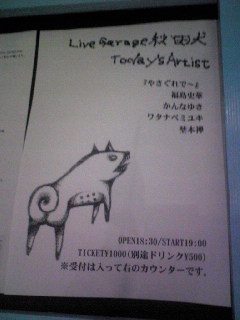 Live Garage 秋田犬
Today's Artist
『やさぐれで〜』
福島史華
かんなゆき
ワタナベミユキ
埜本禅
OPEN18:30/START19:00
TICKET¥1000(別途ドリンク¥500)
※受付は入って右のカウンターです。